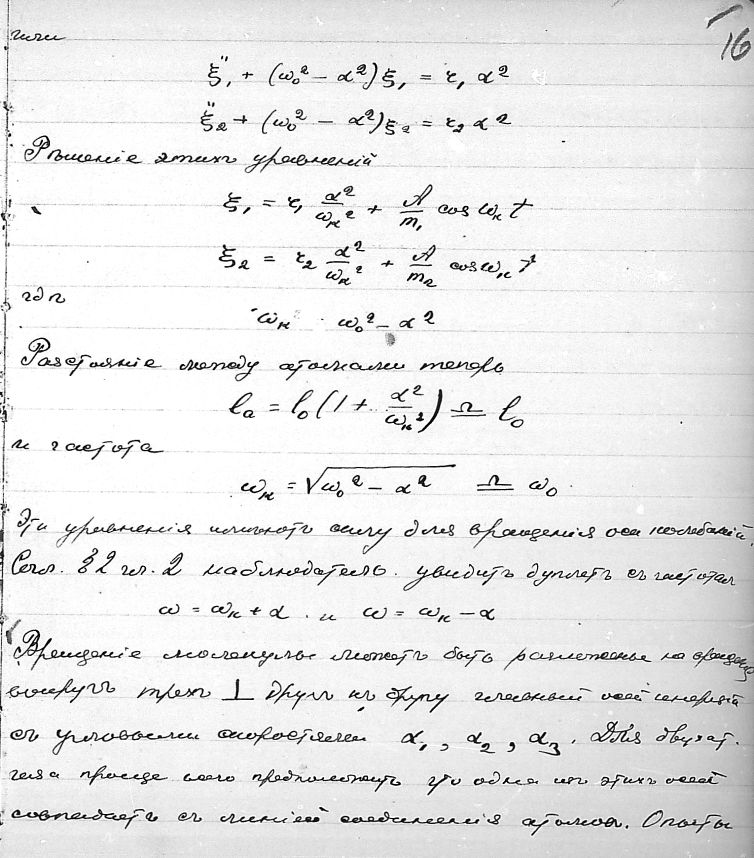 16
или
ξ̈₁ + (ω₀² − α²)ξ₁ = r₁ α²
ξ̈₂ + (ω₀² − α²)ξ₂ = r₂ α²
Рѣшеніе этихъ уравненій
ξ₁ = r₁ α²/ωₖ² + A/m₁ cos ωₖ t
ξ₂ = r₂ α²/ωₖ² + A/m₂ cos ωₖ t
гдѣ
ωₖ ω₀² − α²
Разстояніе между атомами теперь
lₐ = l₀ (1 + α²/ωₖ²) ≏ l₀
и частота
ωₖ = √(ω₀² − α²) ≏ ω₀
Эти уравненія имѣютъ силу для вращенія оси колебаній.
Согл. §2 гл. 2 наблюдатель увидитъ дуплетъ съ частотами
ω = ωₖ + α и ω = ωₖ − α
Вращеніе молекулы можетъ быть разложенье на вращеніе
вокругъ трехъ ⊥ другъ къ другу главный осей инерцій
съ угловыми скоростями α₁, α₂, α₃. Для двухат.
газа проще всего предположить что одна изъ этихъ осей
совпадаетъ съ линіей соединенія атомов. Опыты